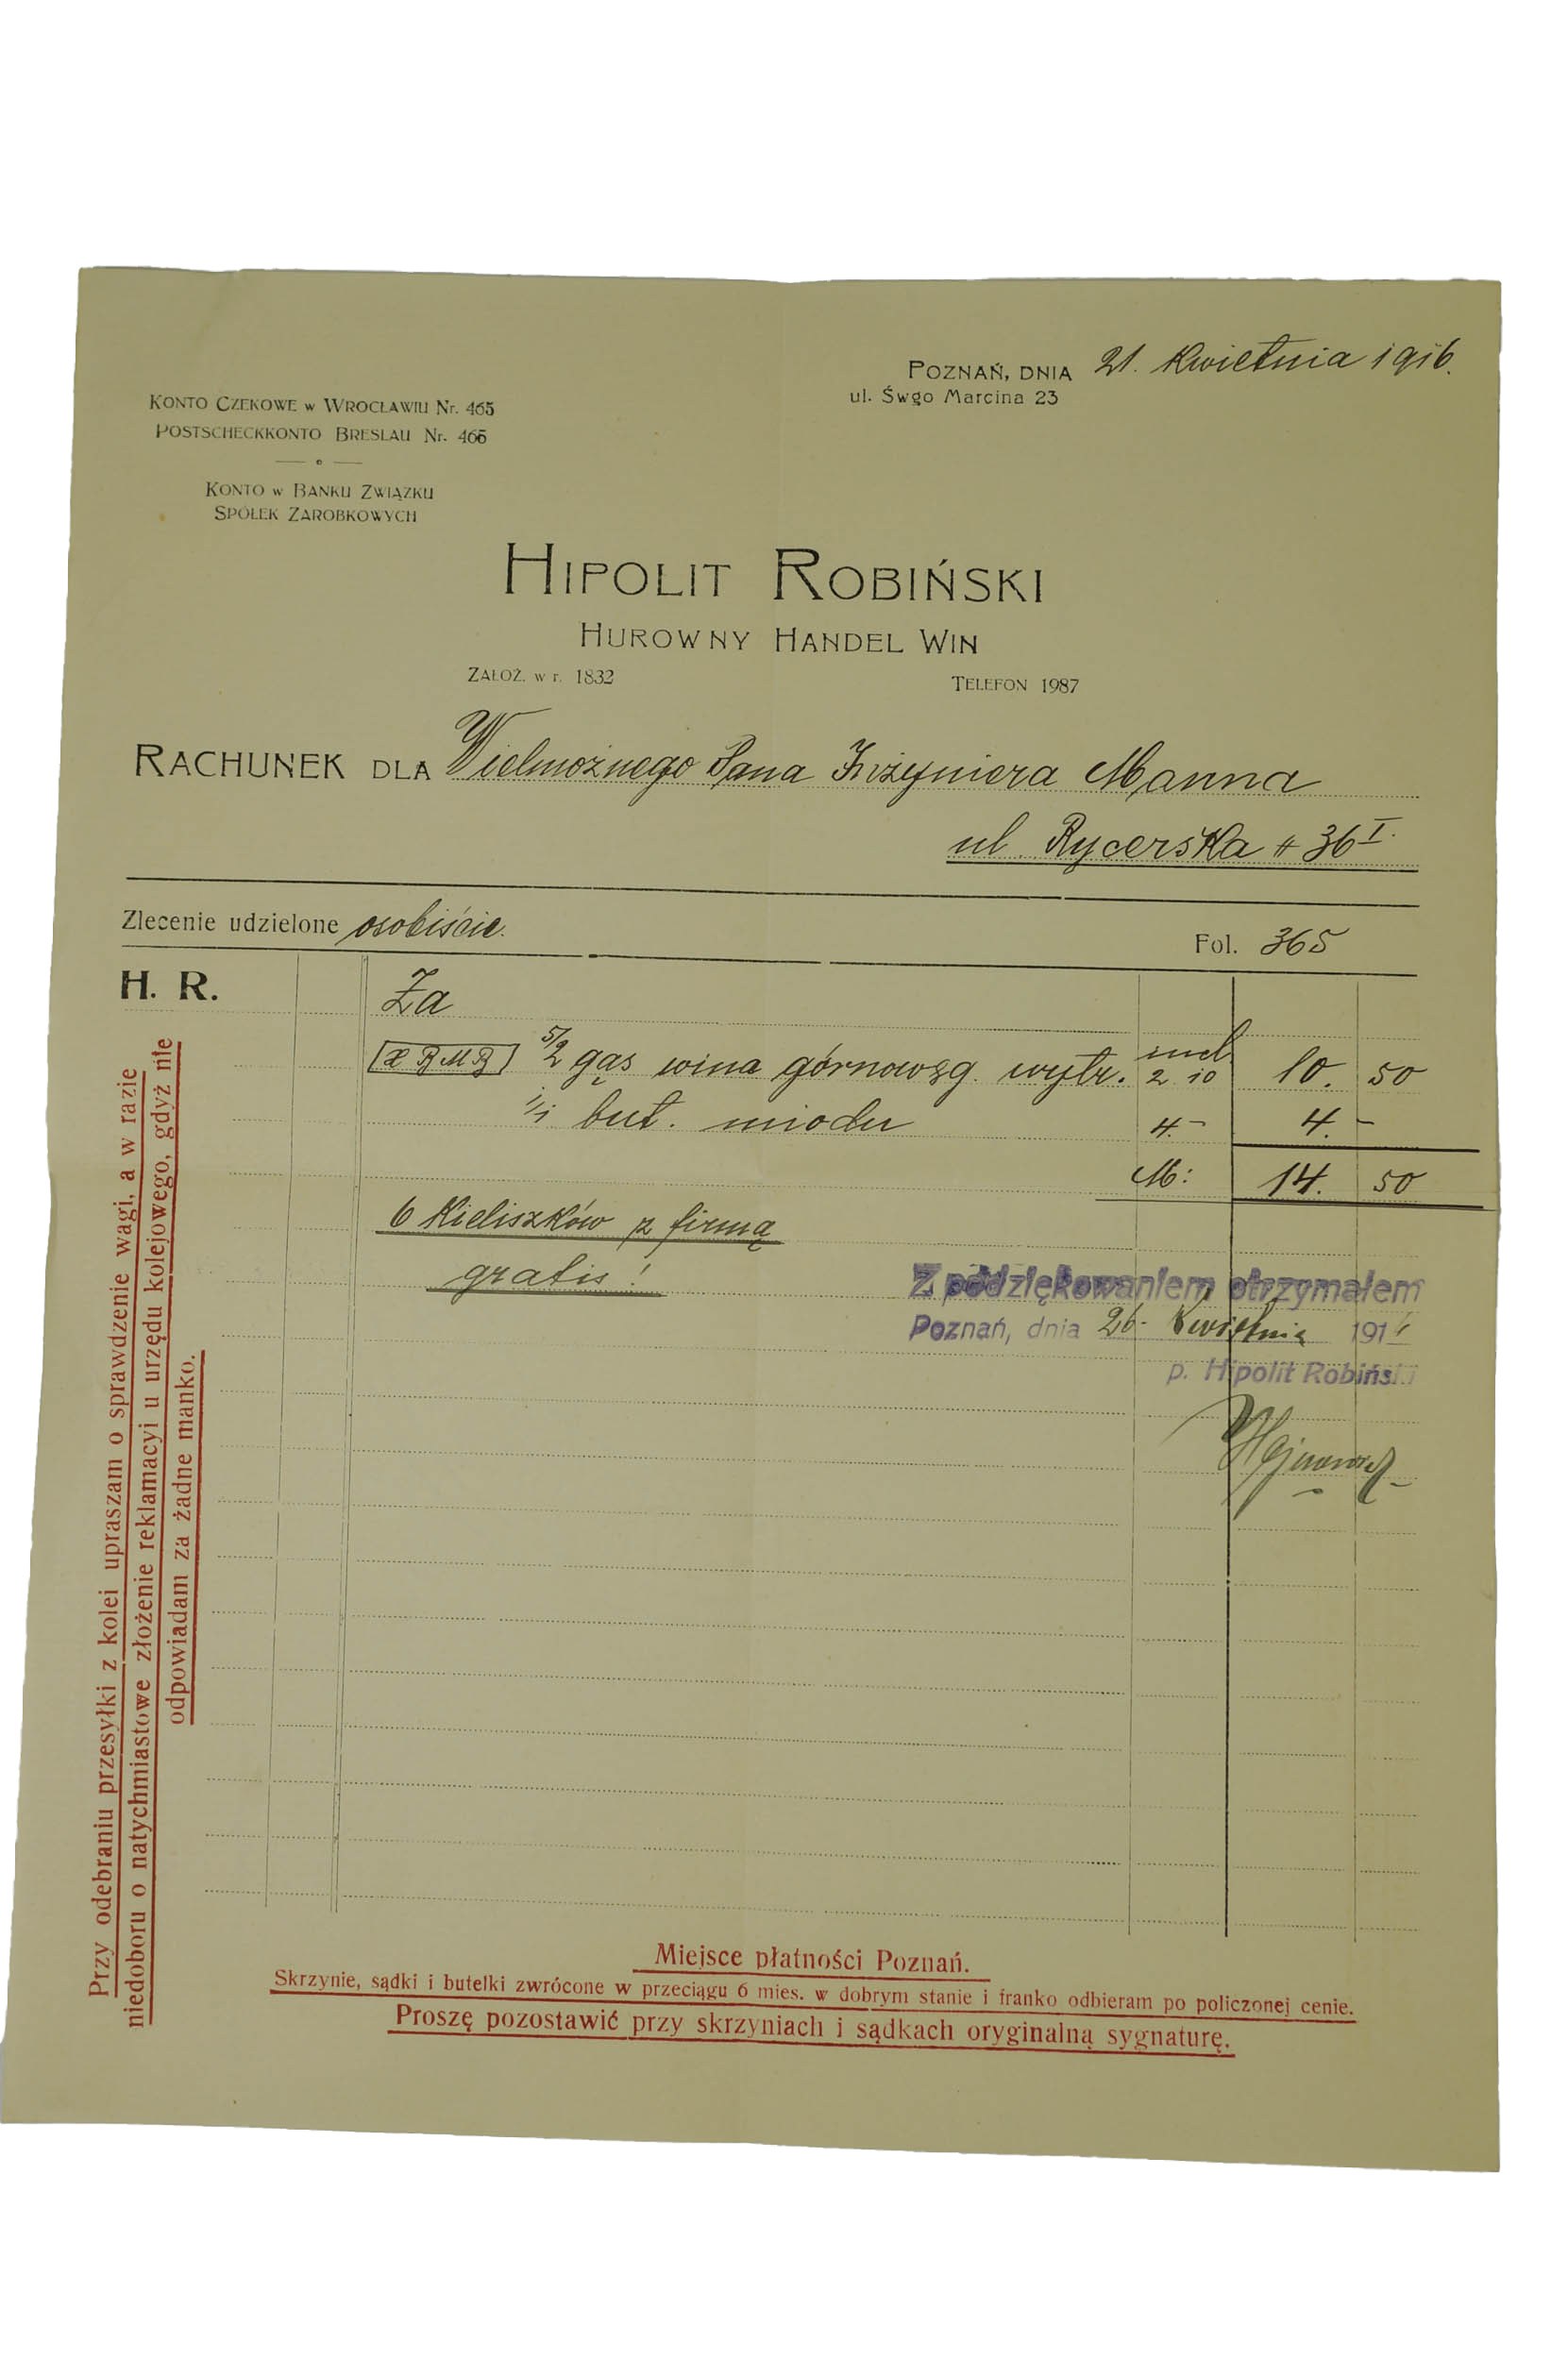 POZNAŃ, DNIA 21. Kwietnia 1916.
ul. Śwgo Marcina 23
KONTO CZEKOWE W WROCŁAWIU Nr. 465
POSTSCHECKKONTO BRESLAU Nr. 465
KONTO W BANKU ZWIĄZKU
SPÓŁEK ZAROBKOWYCH
HIPOLIT ROBIŃSKI
HUROWNY HANDEL WIN
ZAŁOŻ. w r. 1832
TELEFON 1987
RACHUNEK DLA Wielmożnego Pana Inżyniera Manna
ul Rycerska # 36 I.
Zlecenie udzielone osobiście.
Fol. 365
H. R.
Za
5/2 gąs wina górnowęg. wytr. 2 10 10. 50
1/1 but. miodu 4.- 4. -
M: 14. 50
6 Kieliszków z firmą
gratis!
Z podziękowaniem otrzymałem
Poznań, dnia 26. Kwietnia 191
p. Hipolit Robiński
Przy odebraniu przesyłki z kolei upraszam o sprawdzenie wagi, a w razie
niedoboru o natychmiastowe złożenie reklamacyi u urzędu kolejowego, gdyż nie
odpowiadam za żadne manko.
Miejsce płatności Poznań.
Skrzynie, sądki i butelki zwrócone w przeciągu 6 mies. w dobrym stanie i franko odbieram po policzonej cenie.
Proszę pozostawić przy skrzyniach i sądkach oryginalną sygnaturę.